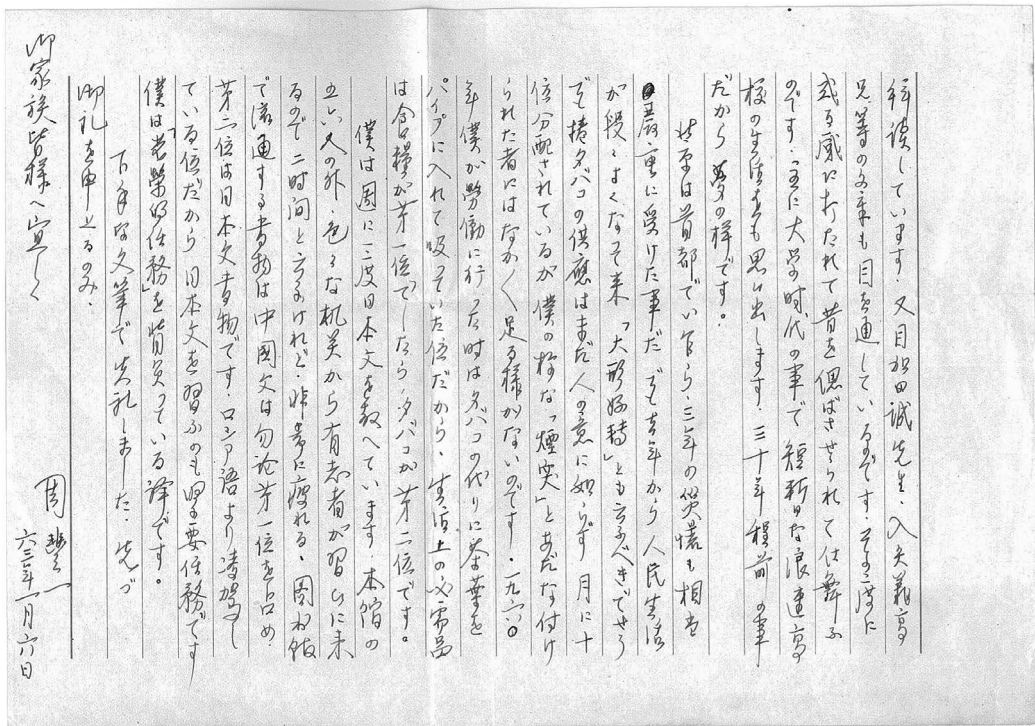 拝読しています．又目加田誠先生、入矢義高
兄、等の文章も目を通しているのです．その度に
或る感に打たれて昔を偲ばさせられて仕舞ふ
のです．主に大学時代の事で 短 な浪速高
校の生活をも思ひ出します．三十年程前の事
だから夢の様です。
北京は首部でい乍ら、三年の災懐も相当
厳重に受けた事だ でも去年から人民生活
が段々よくなって来「大形好転」とも云ふべきでせう
でも捲タバコの供應はまだ人の意に如らず 月に十
位分配されているが 僕の様な「煙突」とあだな付け
られた者にはなか〱足る様がないのです．一九六〇
年僕が勞働に行った時はタバコの代りに茶葉を
パイプに入れて吸っていた位だから、生活上の必需品
は食糧が第一位でしたら、タバコが第二位です。
僕は週に三度日本文を教へています 本館の
五六人の外、色々な机关から有志者が習ひに来
るので 二时间と云うけれど、非常に疲れる．図
で流通する書物は中國文は勿論第一位を占め．
第二位は日本文書物です．ロシア語より凌駕し
ている位だから 日本文を習ふのも 要任務です
僕は「光榮的任務」を背負っている訳です。
下手な文筆で失礼しました．先づ
御礼を申上るのみ．
周豐一
六三年一月六日
御家族皆様へ宜しく